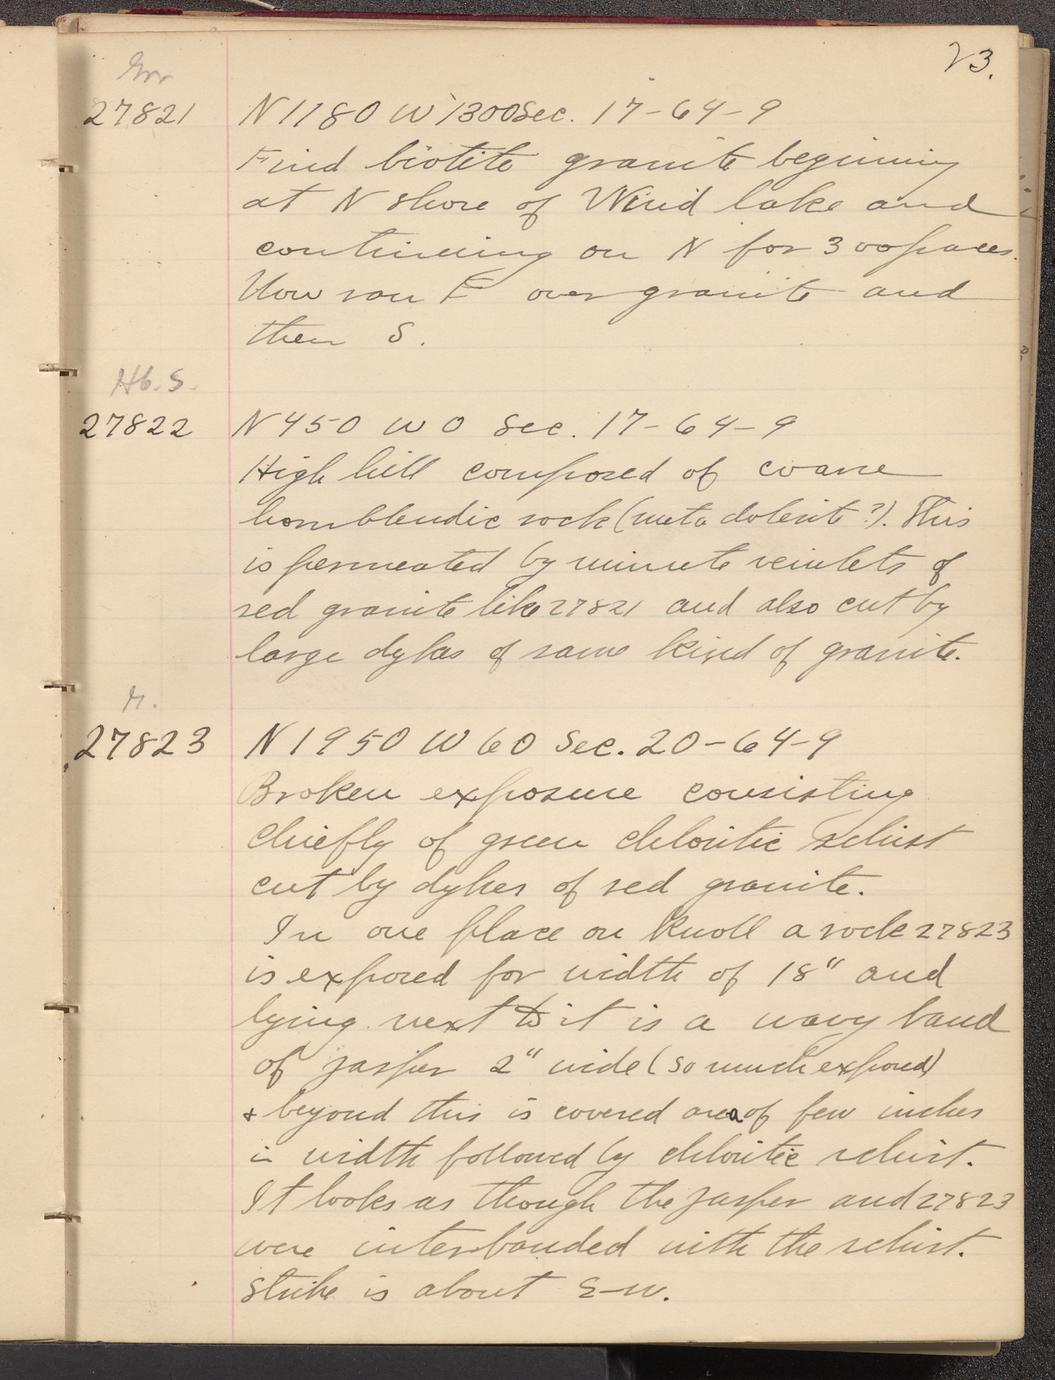 23.
Grr
27821 N 1180 W 1300 Sec. 17-64-9
Find biotite granite beginning
at N shore of Wind lake and
continuing on N for 300 paces.
Now ran E over granite and
then S.
Hb. S.
27822 N 450 W 0 Sec. 17-64-9
High hill composed of coarse
hornblendic rock (meta dolerite?). This
is permeated by minute veinlets of
red granite like 27821 and also cut by
large dykes of same kind of granite.
27823 N 1950 W 60 Sec. 20-64-9
Broken exposure consisting
chiefly of green chloritic schist
cut by dykes of red granite.
In one place on knoll a rock 27823
is exposed for width of 18" and
lying next to it is a wavy band
of jasper 2" wide (so much exposed)
& beyond this is covered area of few inches
in width followed by chloritic schist.
It looks as though the jasper and 27823
were interbanded with the schist.
Strike is about E-W.